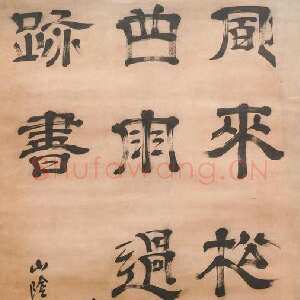 風來松
曲雨過
跡書
山陰
shufawang.CN